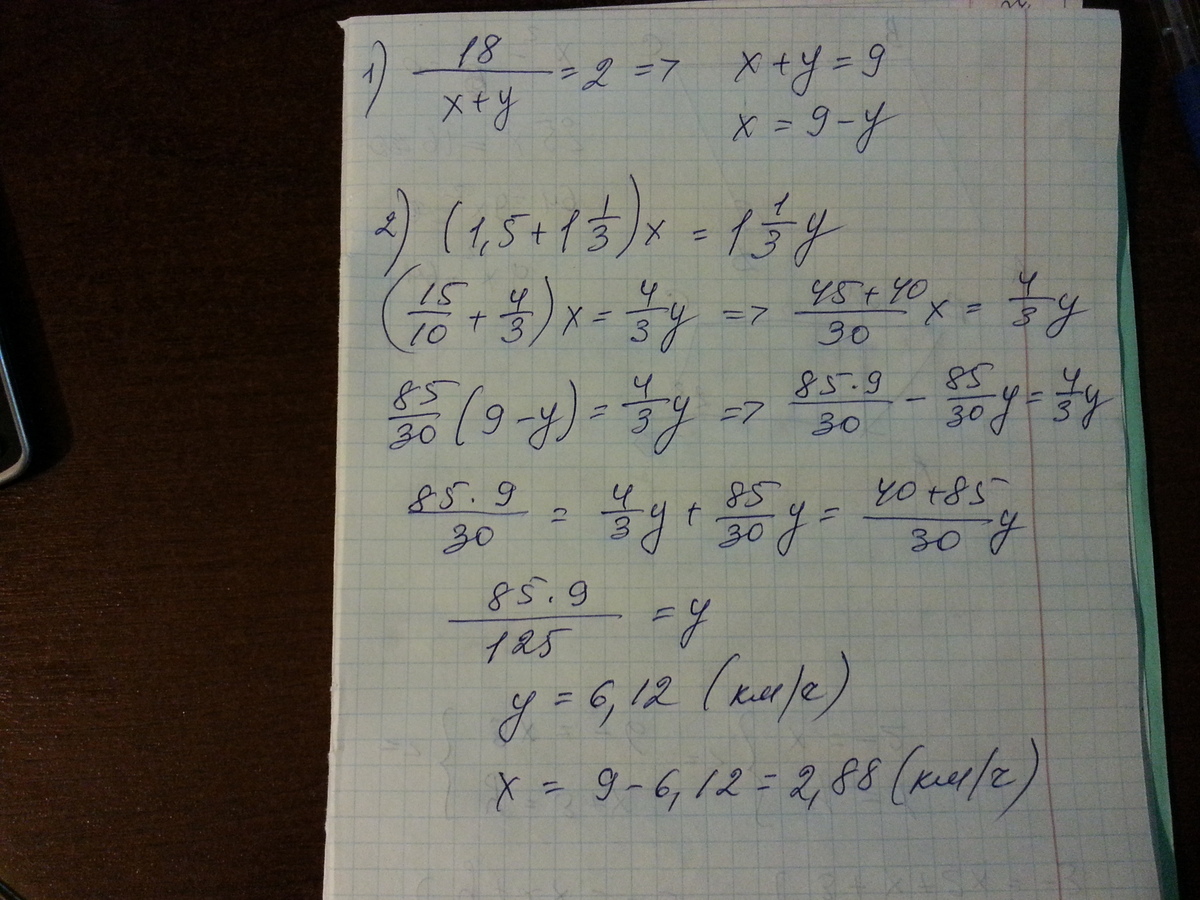 1) 18/(x+y) = 2 => x+y = 9
x = 9-y
2) (1,5 + 1 1/3)x = 1 1/3 y
(15/10 + 4/3)x = 4/3 y => (45+40)/30 x = 4/3 y
85/30 (9-y) = 4/3 y => 85·9/30 - 85/30 y = 4/3 y
85·9/30 = 4/3 y + 85/30 y = (40+85)/30 y
85·9/125 = y
y = 6,12 (км/ч)
x = 9-6,12 = 2,88 (км/ч)